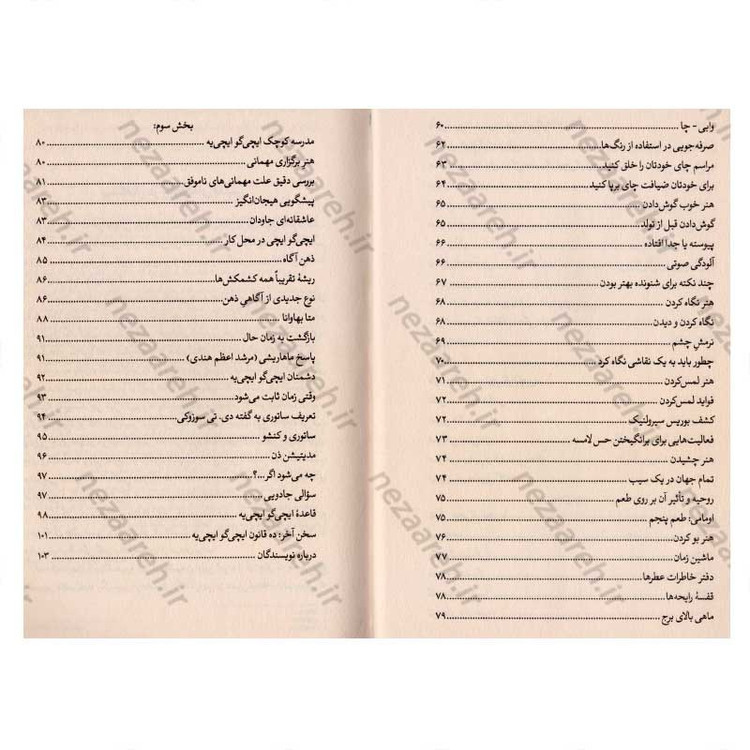 وابی - چا ........ ۶۰
صرفه‌جویی در استفاده از رنگ‌ها ........ ۶۲
مراسم چای خودتان را خلق کنید ........ ۶۳
برای خودتان ضیافت چای برپا کنید ........ ۶۴
هنر خوب گوش‌دادن ........ ۶۵
گوش‌دادن قبل از تولد ........ ۶۵
پیوسته یا جدا افتاده ........ ۶۶
آلودگی صوتی ........ ۶۶
چند نکته برای شنونده بهتر بودن ........ ۶۷
هنر نگاه کردن ........ ۶۸
نگاه کردن و دیدن ........ ۶۸
نرمش چشم ........ ۶۹
چطور باید به یک نقاشی نگاه کرد ........ ۷۰
هنر لمس‌کردن ........ ۷۱
فواید لمس‌کردن ........ ۷۲
کشف بوریس سیرولنیک ........ ۷۲
فعالیت‌هایی برای برانگیختن حس لامسه ........ ۷۳
هنر چشیدن ........ ۷۴
تمام جهان در یک سیب ........ ۷۴
روحیه و تأثیر آن بر روی طعم ........ ۷۵
اومامی: طعم پنجم ........ ۷۵
هنر بو کردن ........ ۷۶
ماشین زمان ........ ۷۷
دفتر خاطرات عطرها ........ ۷۸
قفسهٔ رایحه‌ها ........ ۷۸
ماهی بالای برج ........ ۷۹
بخش سوم:
مدرسه کوچک ایچی‌گو ایچی‌یه ........ ۸۰
هنر برگزاری مهمانی ........ ۸۰
بررسی دقیق علت مهمانی‌های ناموفق ........ ۸۱
پیشگویی هیجان‌انگیز ........ ۸۳
عاشقانه‌ای جاودان ........ ۸۳
ایچی‌گو ایچی در محل کار ........ ۸۴
ذهن آگاه ........ ۸۵
ریشهٔ تقریباً همه کشمکش‌ها ........ ۸۶
نوع جدیدی از آگاهیِ ذهن ........ ۸۶
متا بهاوانا ........ ۸۸
بازگشت به زمان حال ........ ۹۱
پاسخ ماهاریشی (مرشد اعظم هندی) ........ ۹۱
دشمنان ایچی‌گو ایچی‌یه ........ ۹۲
وقتی زمان ثابت می‌شود ........ ۹۳
تعریف ساتوری به گفته دی. تی سوزوکی ........ ۹۴
ساتوری و کنشو ........ ۹۵
مدیتیشن ذن ........ ۹۶
چه می‌شود اگر...؟ ........ ۹۷
سؤالی جادویی ........ ۹۷
قاعدهٔ ایچی‌گو ایچی‌یه ........ ۹۸
سخن آخر: ده قانون ایچی‌گو ایچی‌یه ........ ۱۰۱
درباره نویسندگان ........ ۱۰۳
nezaareh.ir
nezaareh.ir
nezaareh.ir
nezaareh.ir
nezaareh.ir
nezaareh.ir
nezaareh.ir
nezaareh.ir